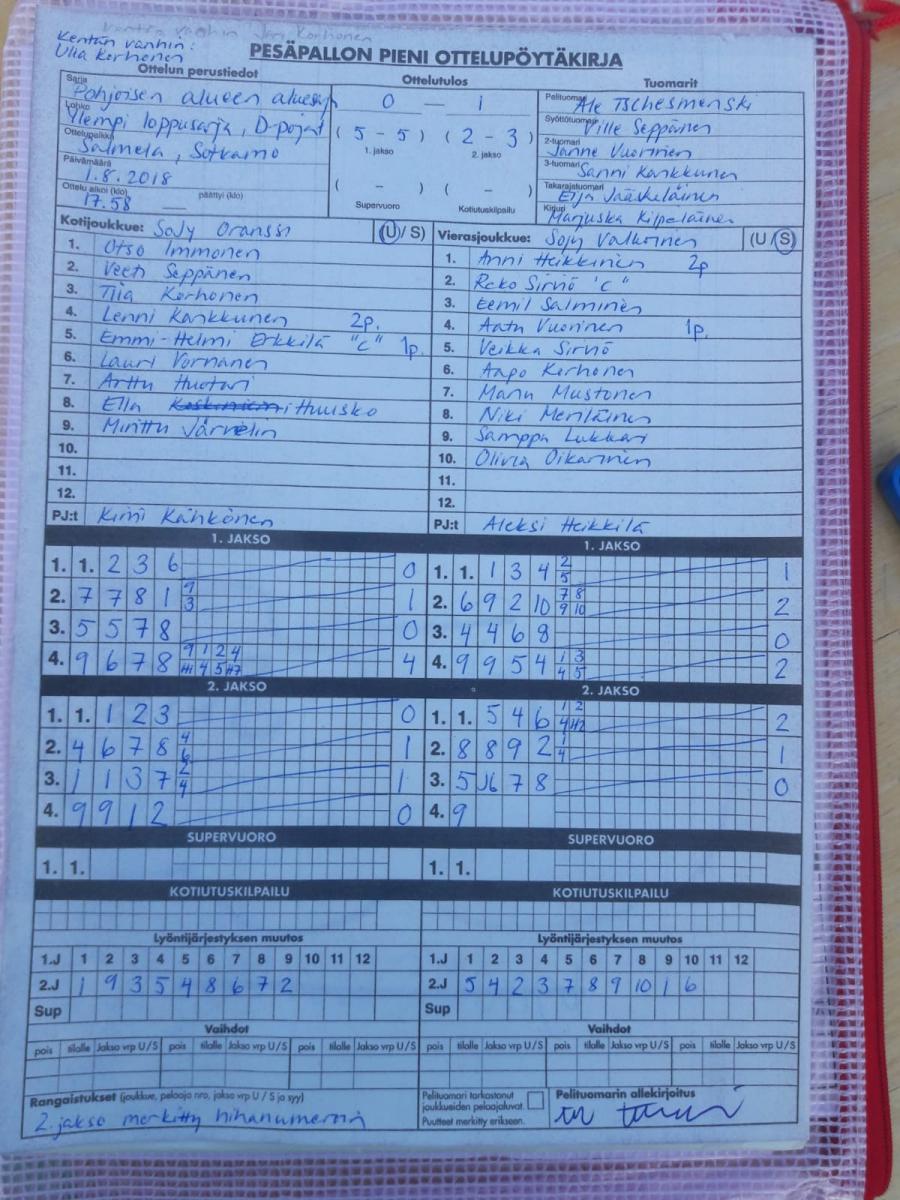 Kentän vanhin:
Ulla Korhonen
PESÄPALLON PIENI OTTELUPÖYTÄKIRJA
Ottelun perustiedot Ottelutulos Tuomarit
Sarja Pohjoisen alueen aluesarja
Lohko Ylempi loppusarja, D-pojat
Ottelupaikka Salmela, Sotkamo
Päivämäärä 1.8.2018
Ottelu alkoi (klo) 17.58 päättyi (klo)
0 — 1
( 5 - 5 ) ( 2 - 3 )
1. jakso 2. jakso
( - ) ( - )
Supervuoro Kotiutuskilpailu
Pelituomari Ale Tschesmenski
Syöttötuomari Ville Seppänen
2-tuomari Janne Vuorinen
3-tuomari Sanni Kankkunen
Takarajatuomari Eija Jääskeläinen
Kirjuri Marjuska Kilpeläinen
Kotijoukkue: SoJy Oranssi (U / S)
1. Otso Immonen
2. Veeti Seppänen
3. Tiia Korhonen
4. Lenni Kankkunen 2p.
5. Emmi-Helmi Erkkilä "C" 1p.
6. Lauri Vornanen
7. Arttu Huotari
8. Ella Huusko
9. Minttu Järvelin
10.
11.
12.
PJ:t Kimi Kähkönen
Vierasjoukkue: SoJy Valkoinen (U / S)
1. Anni Heikkinen 2p
2. Roko Sirviö "C"
3. Eemil Salminen
4. Aatu Vuorinen 1p.
5. Veikka Sirviö
6. Aapo Korhonen
7. Manu Mustonen
8. Niki Meriläinen
9. Samppa Lukkari
10. Olivia Oikarinen
11.
12.
PJ:t Aleksi Heikkilä
1. JAKSO 1. JAKSO
1. 1. 2 3 6 0
2. 7 7 8 1 9 3 1
3. 5 5 7 8 0
4. 9 6 7 8 9 1 2 4 H1 4 5 H7 4
1. 1. 1 3 4 2 5 1
2. 6 9 2 10 7 8 9 10 2
3. 4 4 6 8 0
4. 9 9 5 4 1 3 4 5 2
2. JAKSO 2. JAKSO
1. 1. 1 2 3 0
2. 4 6 7 8 4 6 1
3. 1 1 3 7 2 4 1
4. 9 9 1 2 0
1. 1. 5 4 6 1 2 4 H2 2
2. 8 8 9 2 1 4 1
3. 5 J6 7 8 0
4. 9
SUPERVUORO SUPERVUORO
1. 1. 1. 1.
KOTIUTUSKILPAILU KOTIUTUSKILPAILU
Lyöntijärjestyksen muutos Lyöntijärjestyksen muutos
1.J 1 2 3 4 5 6 7 8 9 10 11 12 1.J 1 2 3 4 5 6 7 8 9 10 11 12
2.J 1 9 3 5 4 8 6 7 2 2.J 5 4 2 3 7 8 9 10 1 6
Sup Sup
Vaihdot Vaihdot
pois tilalle Jakso vrp U/S pois tilalle Jakso vrp U/S pois tilalle Jakso vrp U/S pois tilalle Jakso vrp U/S pois tilalle Jakso vrp U/S pois tilalle Jakso vrp U/S
Rangaistukset (joukkue, pelaaja nro, jakso vrp U / S ja syy)
2. jakso merkitty hihanumeroin
Pelituomari tarkastanut
joukkueiden pelaajaluvat.
Puutteet merkitty erikseen.
Pelituomarin allekirjoitus